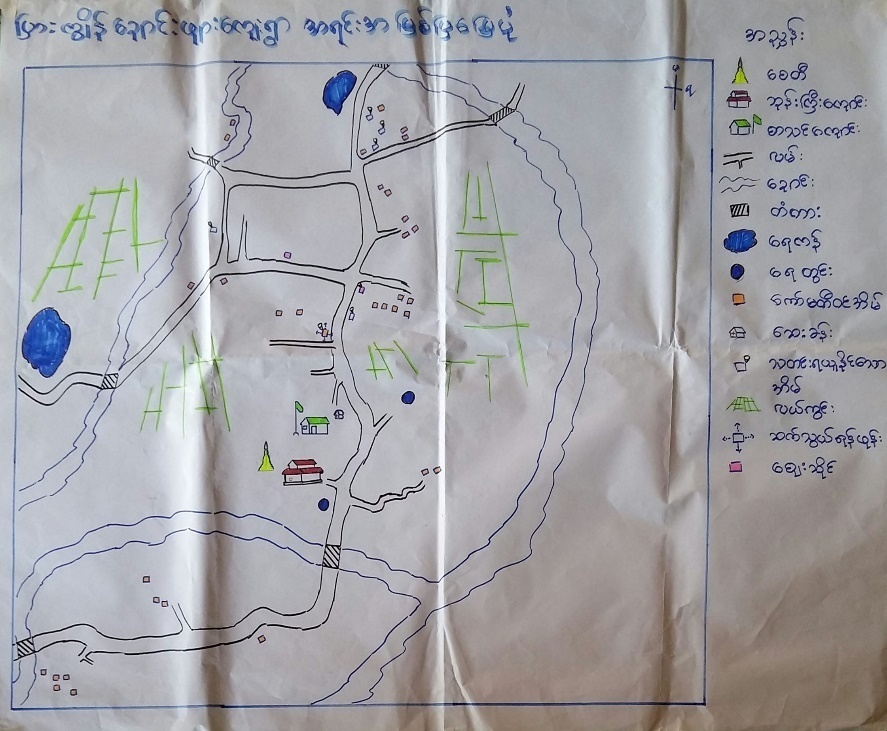 ပြားကျွန်ချောင်းဖျားကျေးရွာ အရင်းအမြစ်ပြမြေပုံ
အညွှန်း
စေတီ
ဘုန်းကြီးကျောင်း
စာသင်ကျောင်း
လမ်း
ချောင်း
တံတား
ရေကန်
ရေတွင်း
ကော်မတီဝင်အိမ်
ဆေးခန်း
သတင်းရယူနိုင်သော
အိမ်
လယ်ကွင်း
ဆက်သွယ်ရန်ဖုန်း
ဈေးဆိုင်